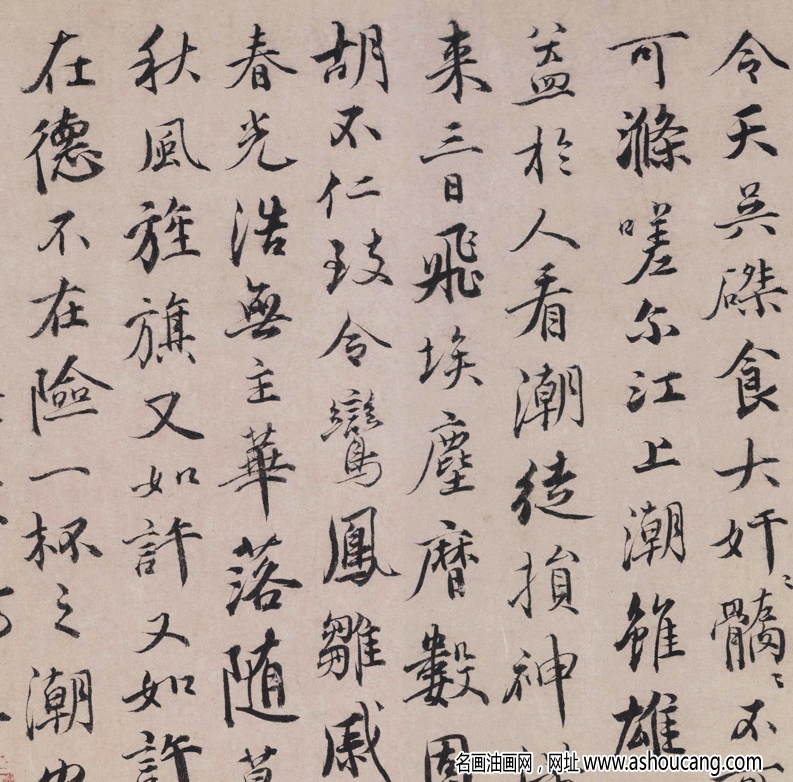 令天吳磔食大奸〻髒〻不
可滌嗟尔江上潮雖雄
益於人看潮徒損神
來三日飛埃塵曆數
胡不仁致令鸞鳳雛戚
春光浩無主華落随
秋風旌旗又如許又如許
在德不在險一杯之潮
名画油画网，网址 www.ashoucang.com